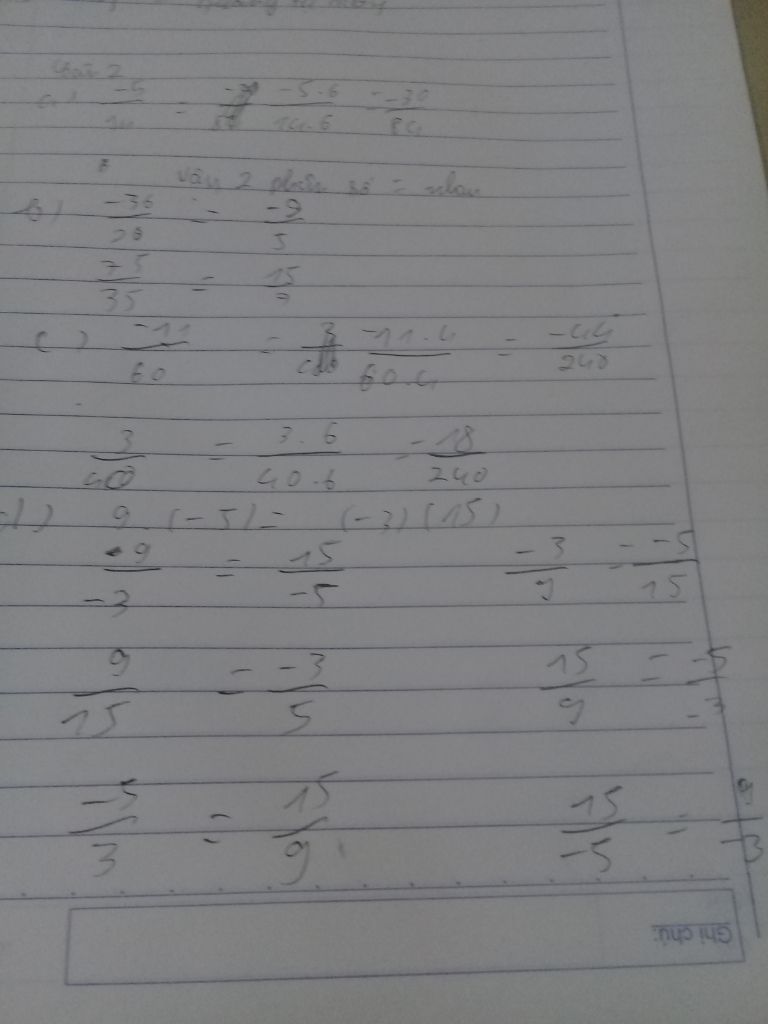 a) -5/14 = -5.6/14.6 = -30/84
Vậy 2 phân số = nhau
b) -36/20 = -9/5
75/35 = 15/7
c) -11/60 = -11.4/60.4 = -44/240
3/40 = 3.6/40.6 = 18/240
d) 9.(-5) = (-3)(15)
9/-3 = 15/-5 -3/9 = -5/15
9/15 = -3/5 15/9 = -5/-3
-5/3 = 15/9 15/-5 = 9/-3
Ghi chú: